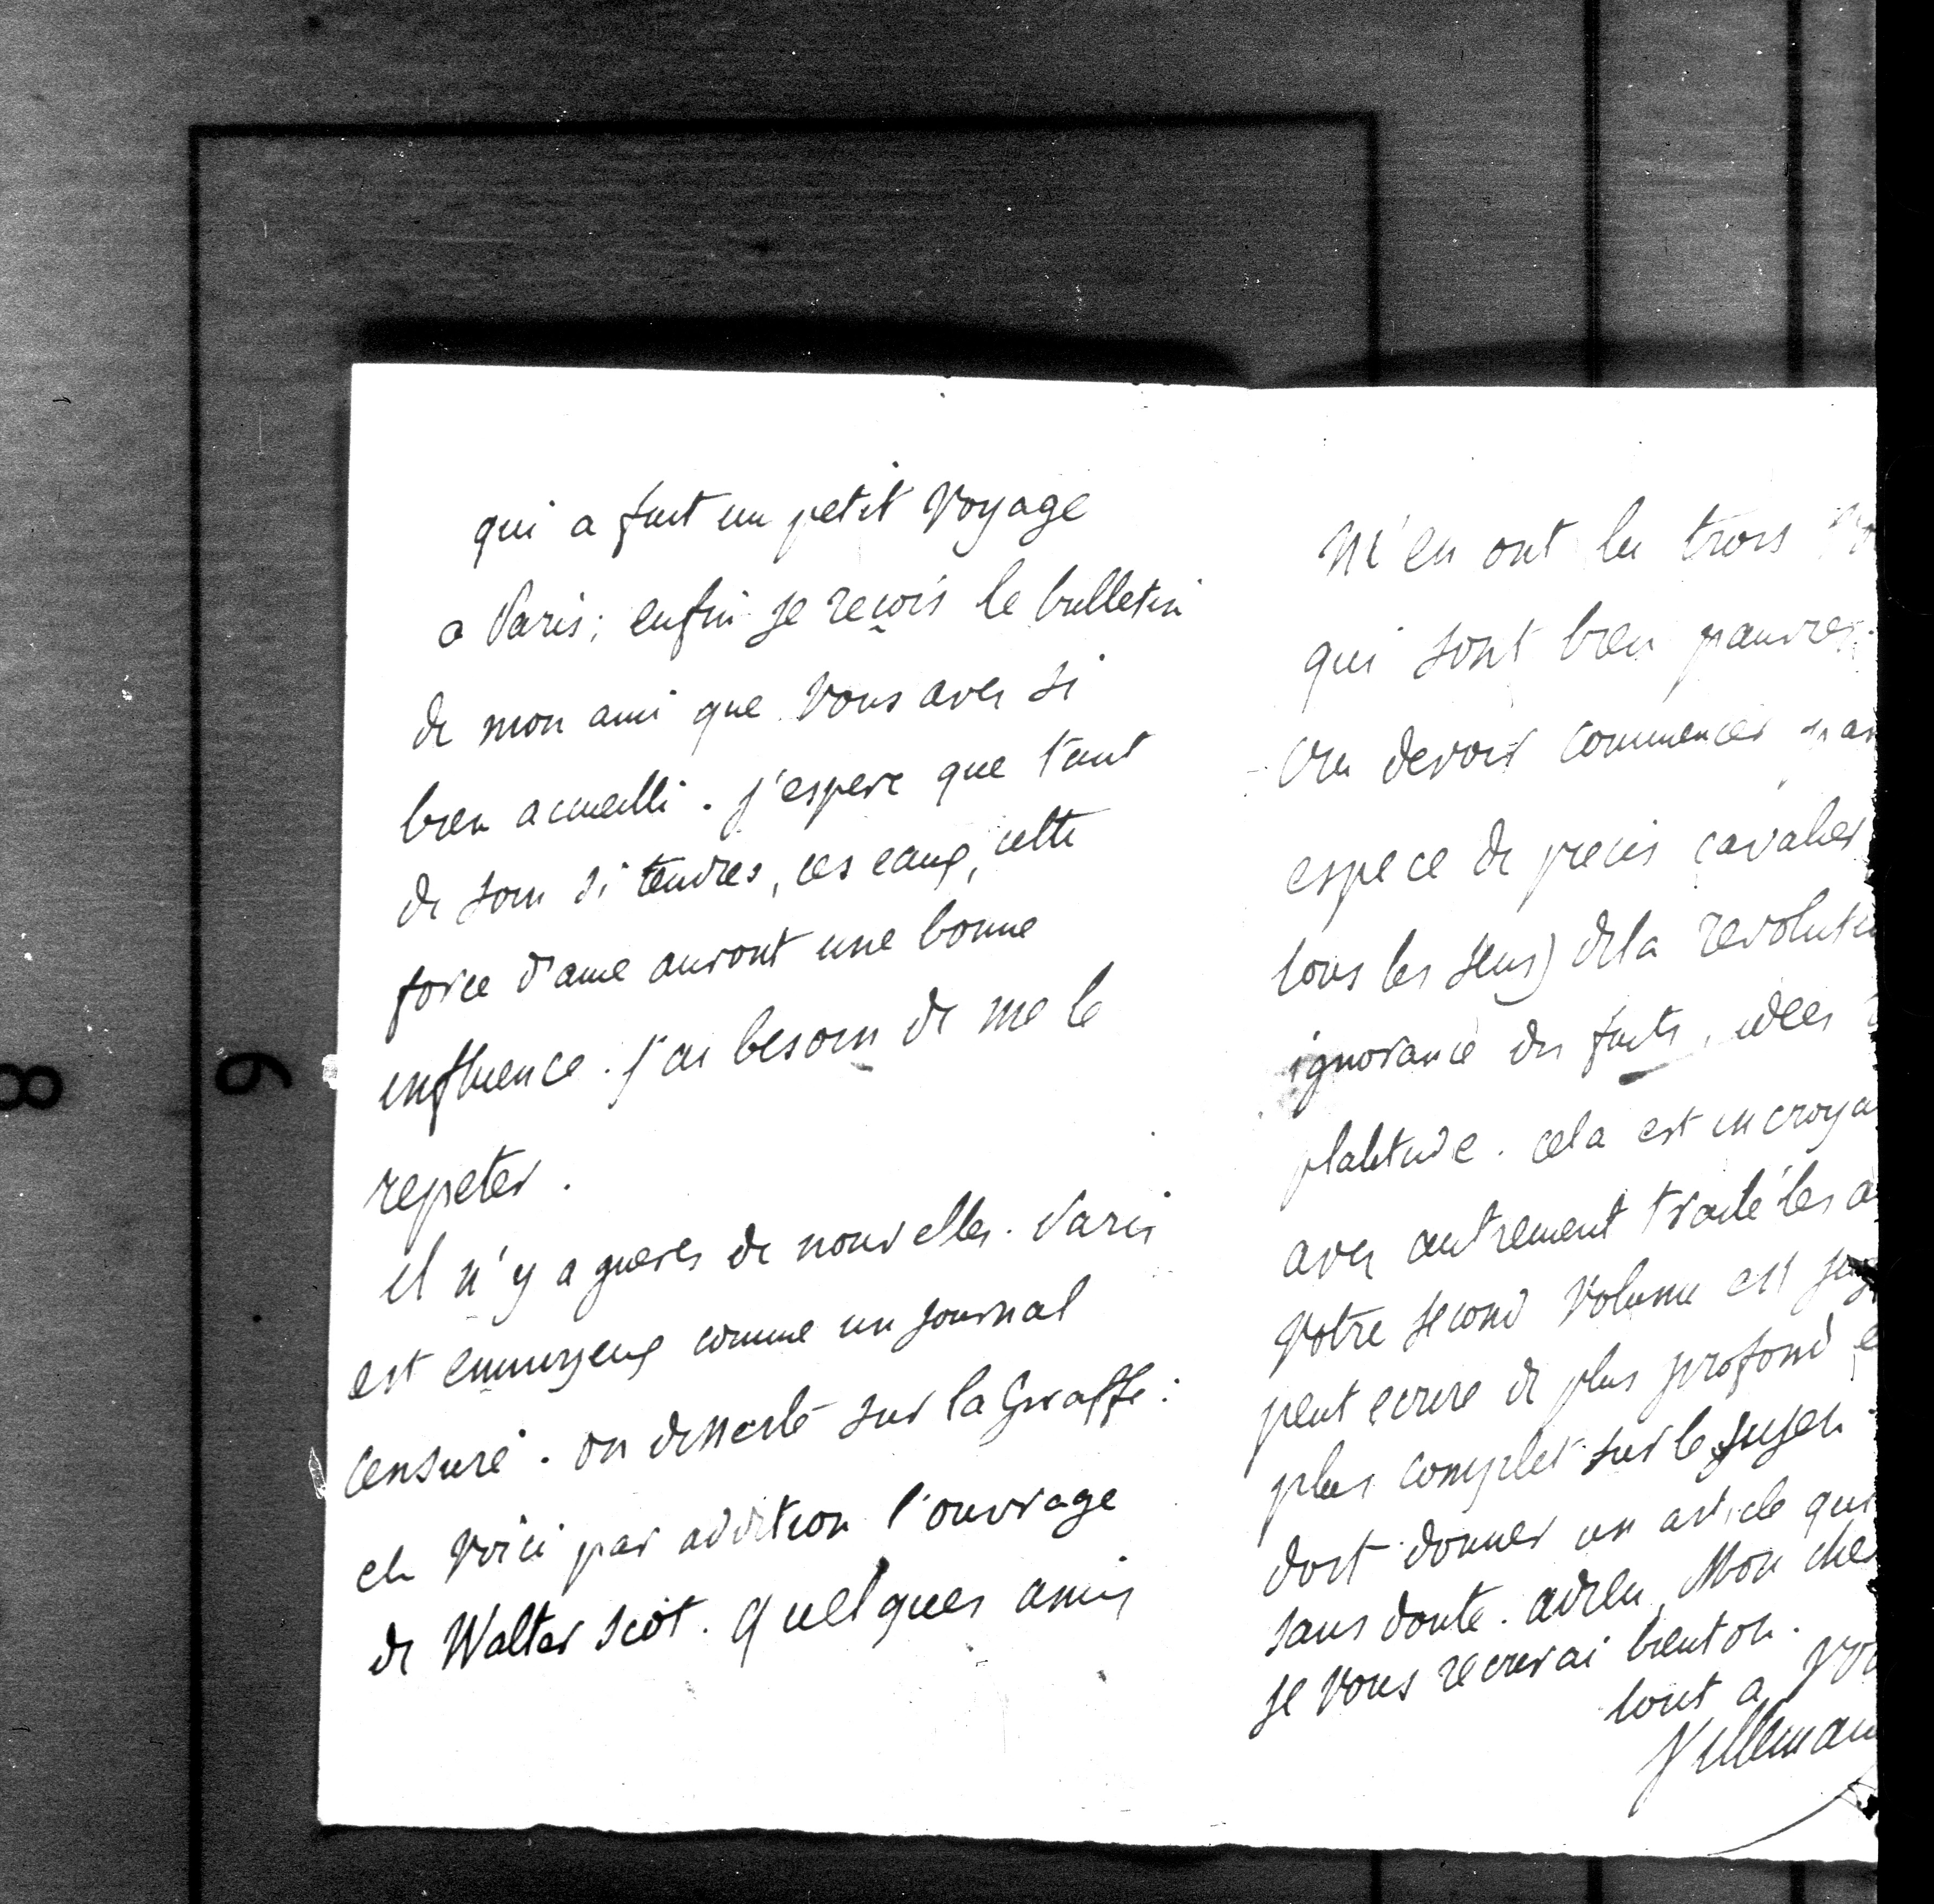 qui a fait un petit voyage
a Paris; enfin je reçois le bulletin
de mon ami que vous avez si
bien accueilli. j'espere que tant
de soin si tendres, ces eaux, cette
force d'ame auront une bonne
influence. j'ai besoin de me le
repeter.
il n'y a gueres de nouvelles. Paris
est ennuyeux comme un journal
censuré. on disserte sur la Giraffe:
et voici par addition l'ouvrage
de Walter Scot. quelques amis
m'en ont lu trois
qui sont bien pauvres.
devoir commencer par
espece de precis cavalier
tous les sens) de la revolution
ignorance des faits, idées
platitude. cela est incroya
avez autrement traité les a
votre second volume est
peut ecrire de plus profond e
plus complet sur le sujet.
doit donner un article qui
sans doute. adieu, Mon cher
je vous recrirai bientot.
tout a vou
Villemain
8
9